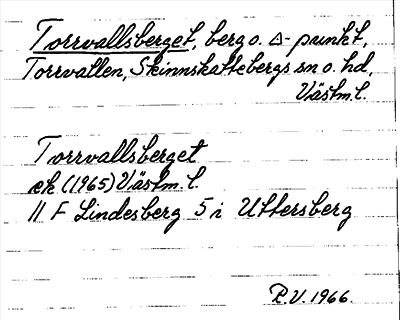 Torrvallsberget, berg o. △-punkt,
Torrvallen, Skinnskattebergs sn o. hd,
Västm. l.
Torrvallsberget
ek (1965) Västm. l.
11 F Lindesberg 5 i Uttersberg
P.V. 1966.